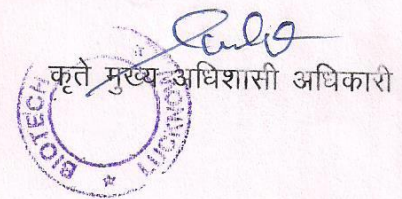 कृते मुख्य अधिशासी अधिकारी
BIOTECH
LUCKNOW